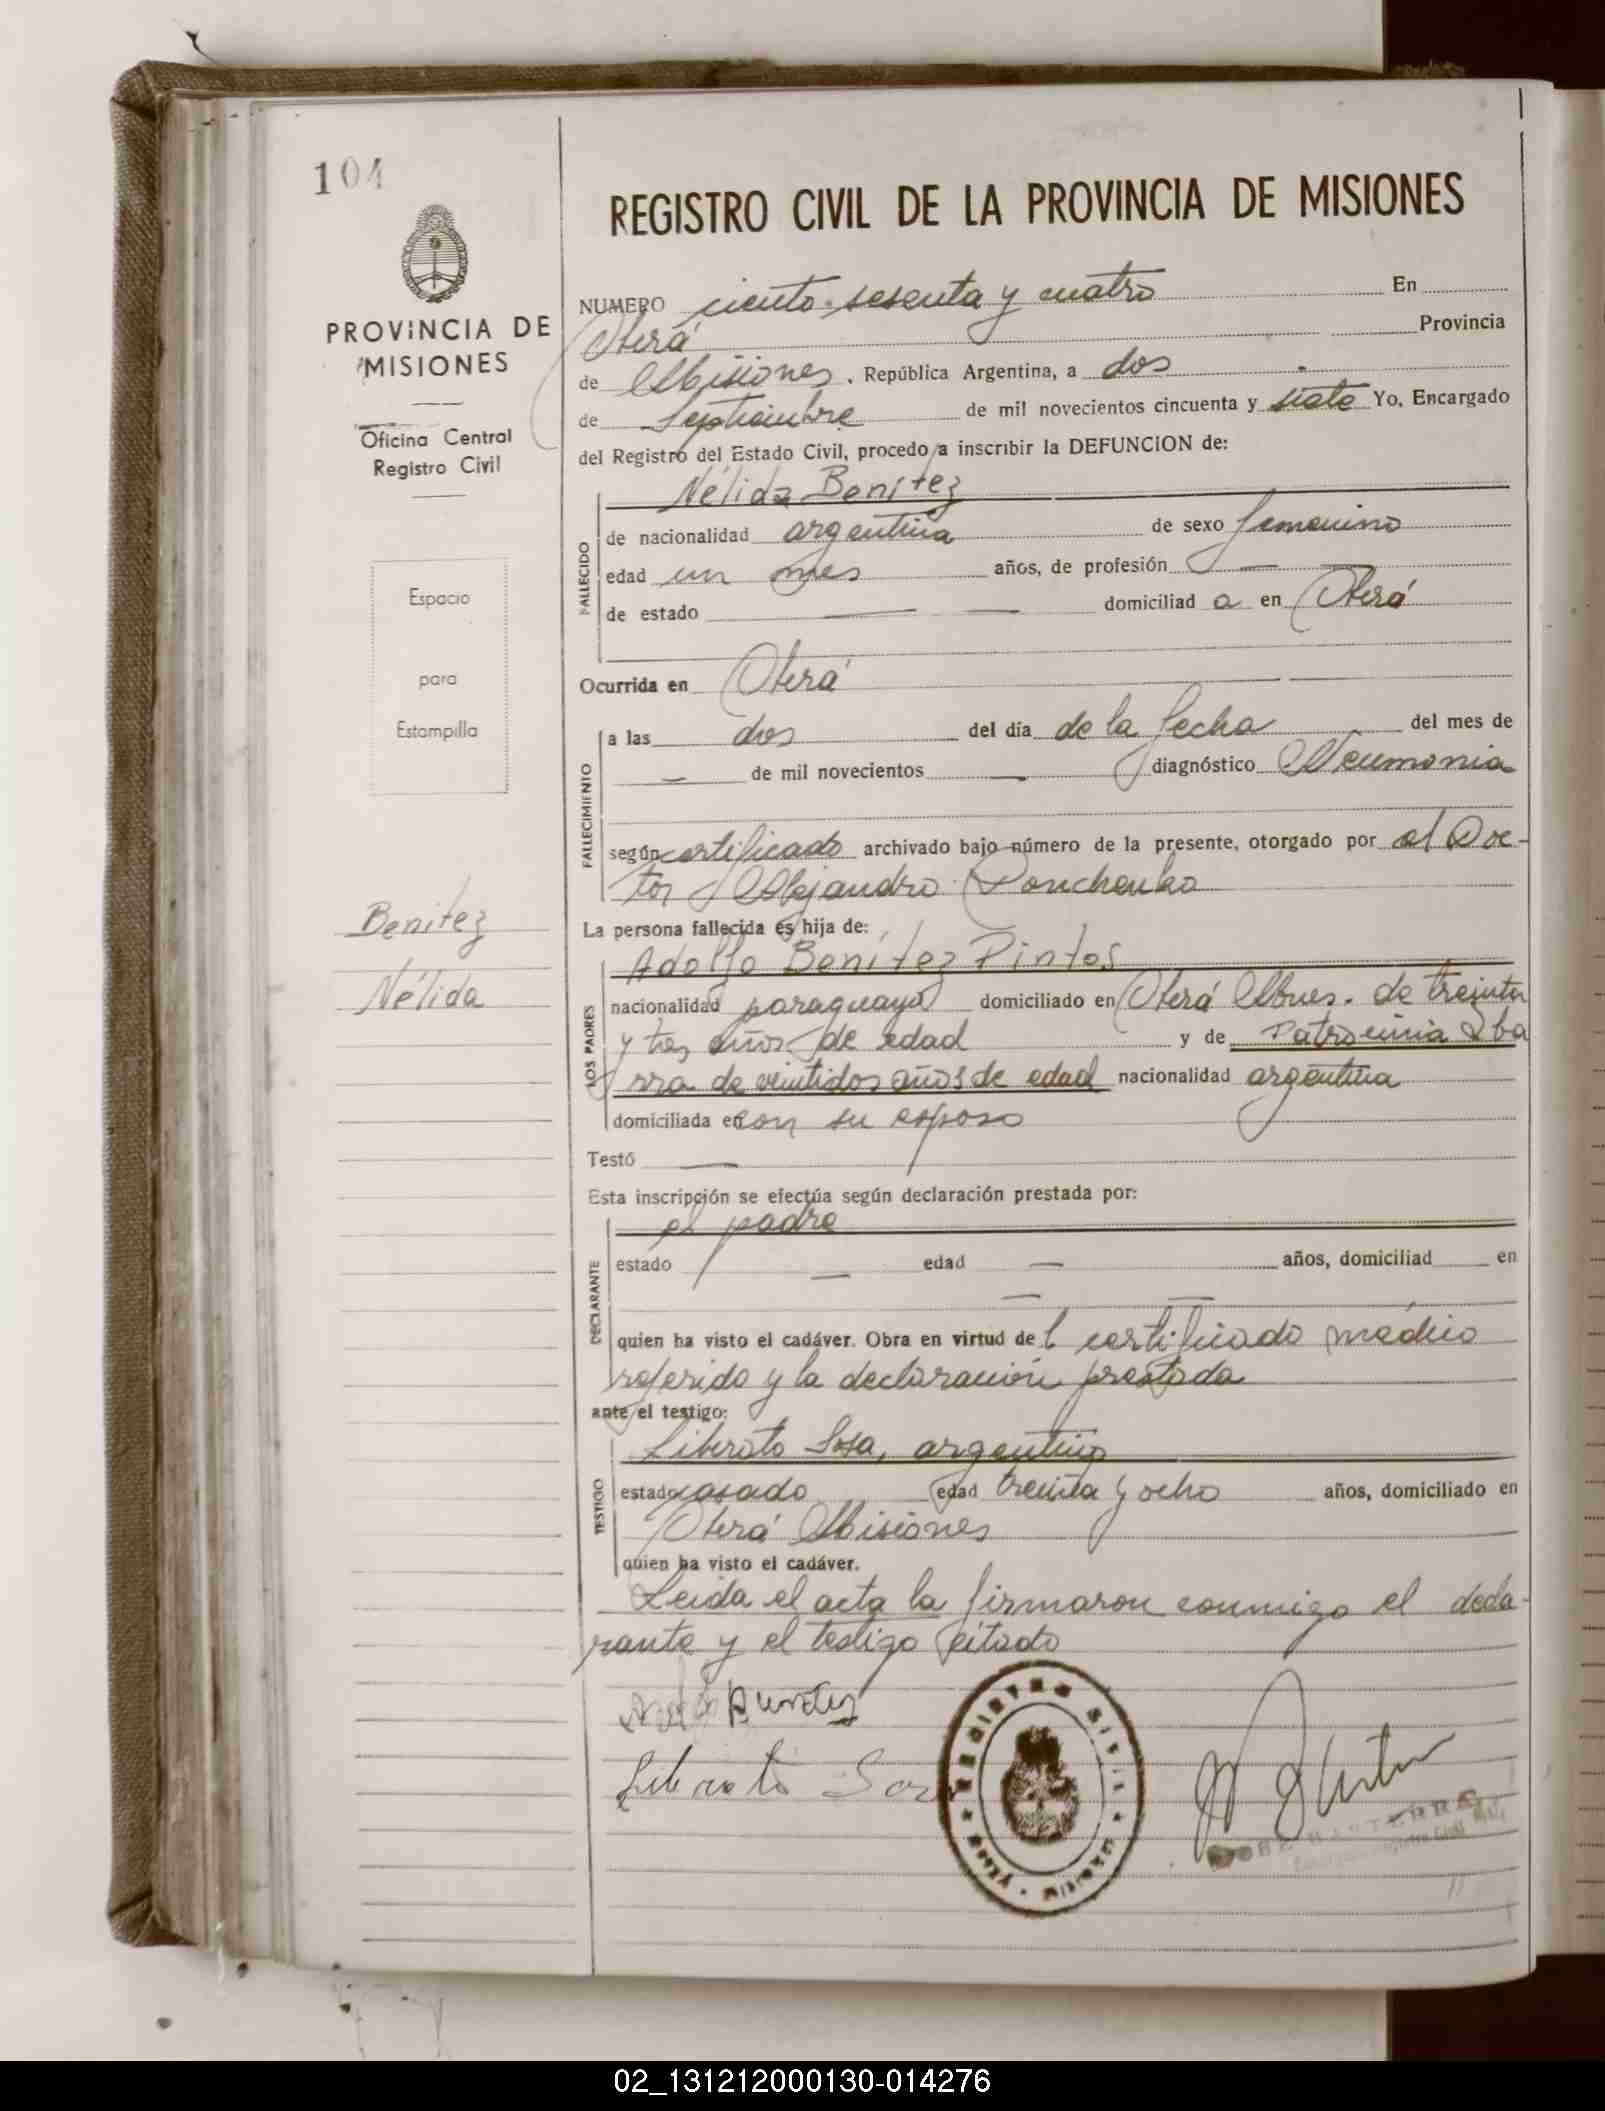 104
PROVINCIA DE
MISIONES
Oficina Central
Registro Civil
Espacio
para
Estampilla
Benitez
Nélida
REGISTRO CIVIL DE LA PROVINCIA DE MISIONES
NUMERO ciento sesenta y cuatro En
Oberá Provincia
de Misiones. República Argentina, a dos
de Septiembre de mil novecientos cincuenta y siete Yo, Encargado
del Registro del Estado Civil, procedo a inscribir la DEFUNCION de:
Nélida Benítez
FALLECIDO
de nacionalidad argentina de sexo femenino
edad un mes años, de profesión —
de estado — — domiciliad a en Oberá
Ocurrida en Oberá
FALLECIMIENTO
a las dos del día de la fecha del mes de
— de mil novecientos — diagnóstico Neumonia
según certificado archivado bajo número de la presente, otorgado por el Doc-
tor Alejandro Ponchenko
La persona fallecida es hija de:
Adolfo Benítez Pintos
LOS PADRES
nacionalidad paraguayo domiciliado en Oberá Mnes. de treinta
y tres años de edad y de Patrocinia Iba
rra de veintidos años de edad nacionalidad argentina
domiciliada en con su esposo
Testó —
Esta inscripción se efectúa según declaración prestada por:
el padre
DECLARANTE
estado — edad — años, domiciliad en
quien ha visto el cadáver. Obra en virtud del certificado médico
referido y la declaración prestada
ante el testigo:
Liberato Sosa, argentino
TESTIGO
estado casado edad treinta y ocho años, domiciliado en
Oberá Misiones
quien ha visto el cadáver.
Leida el acta la firmaron conmigo el decla-
rante y el testigo citado
Liberato Sosa
REGISTRO CIVIL
MISIONES
02_131212000130-014276